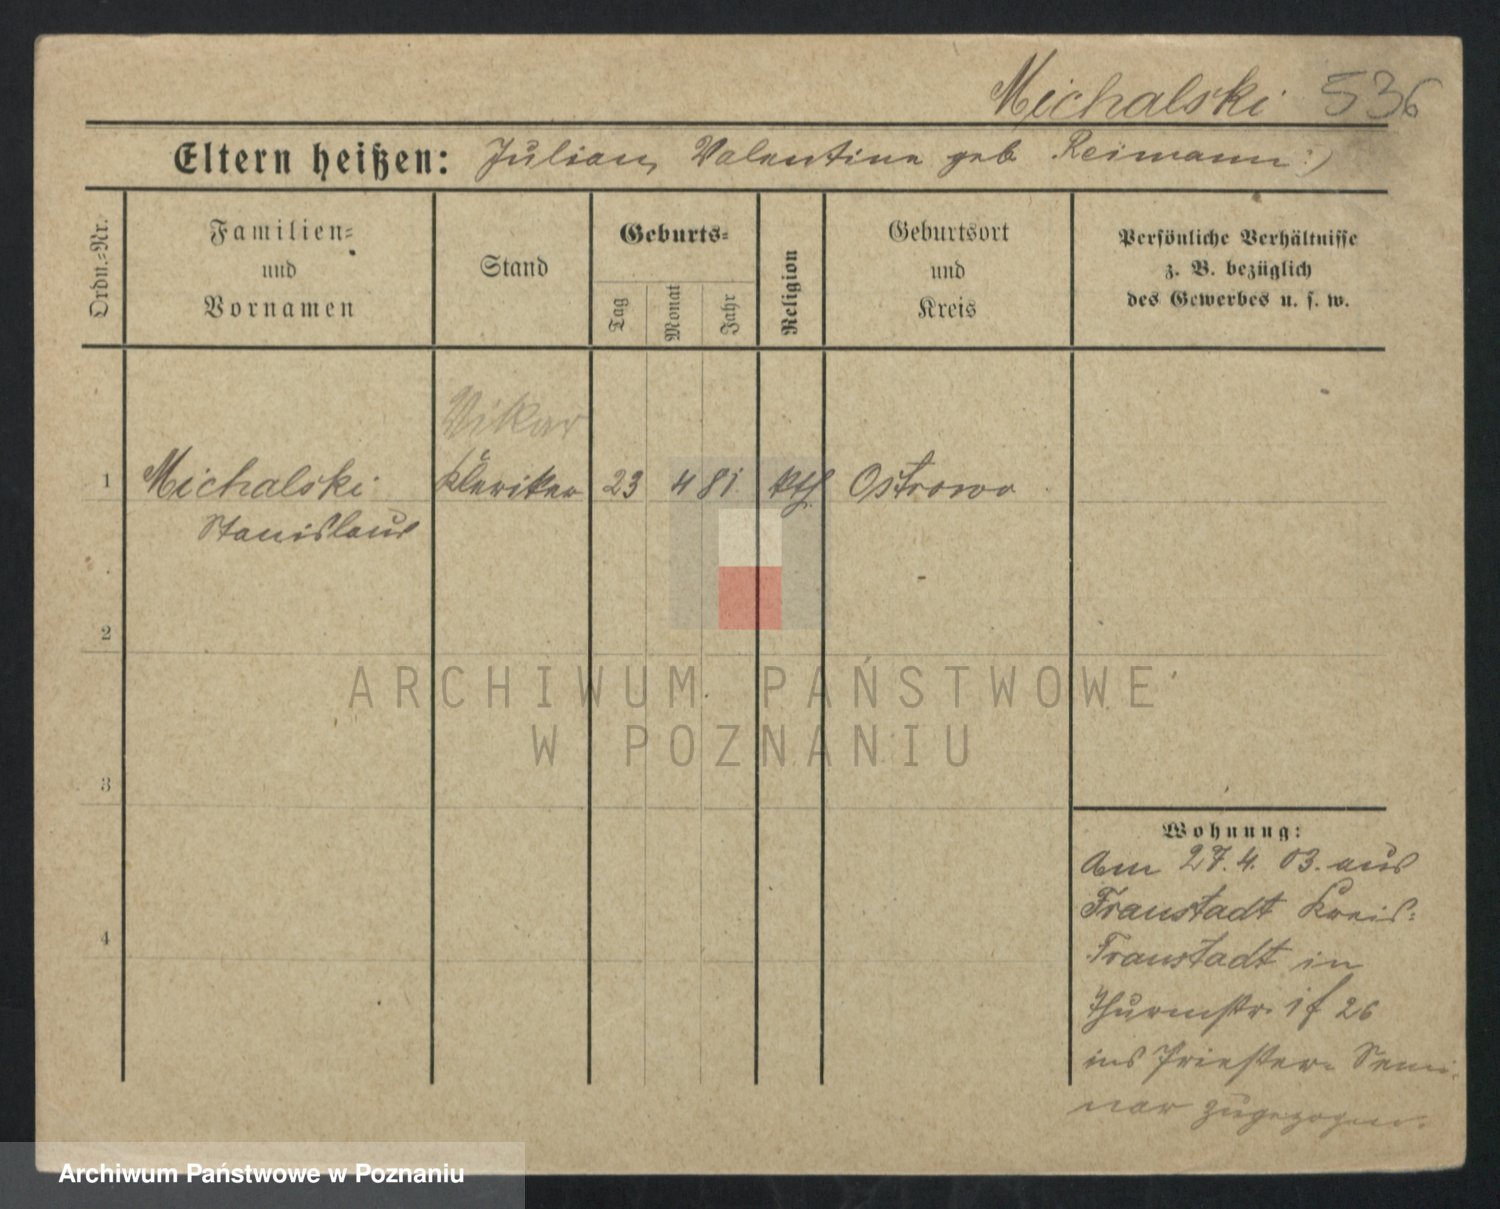 Michalski 536
Eltern heißen: Julian, Valentine geb. Reimann :)
Ordn.=Nr.
Familien=
und
Vornamen
Stand
Geburts=
Tag
Monat
Jahr
Religion
Geburtsort
und
Kreis
Persönliche Verhältnisse
z. B. bezüglich
des Gewerbes u. s. w.
Vikar
1 Michalski Kleriker 23 4 81 kth. Ostrowo
Stanislaus
2
3
4
Wohnung:
Am 27.4.03. aus
Fraustadt Kreis:
Fraustadt in
Thurmstr.
ins Priester= Semi-
nar zugezogen.
ARCHIWUM PAŃSTWOWE
W POZNANIU
Archiwum Państwowe w Poznaniu